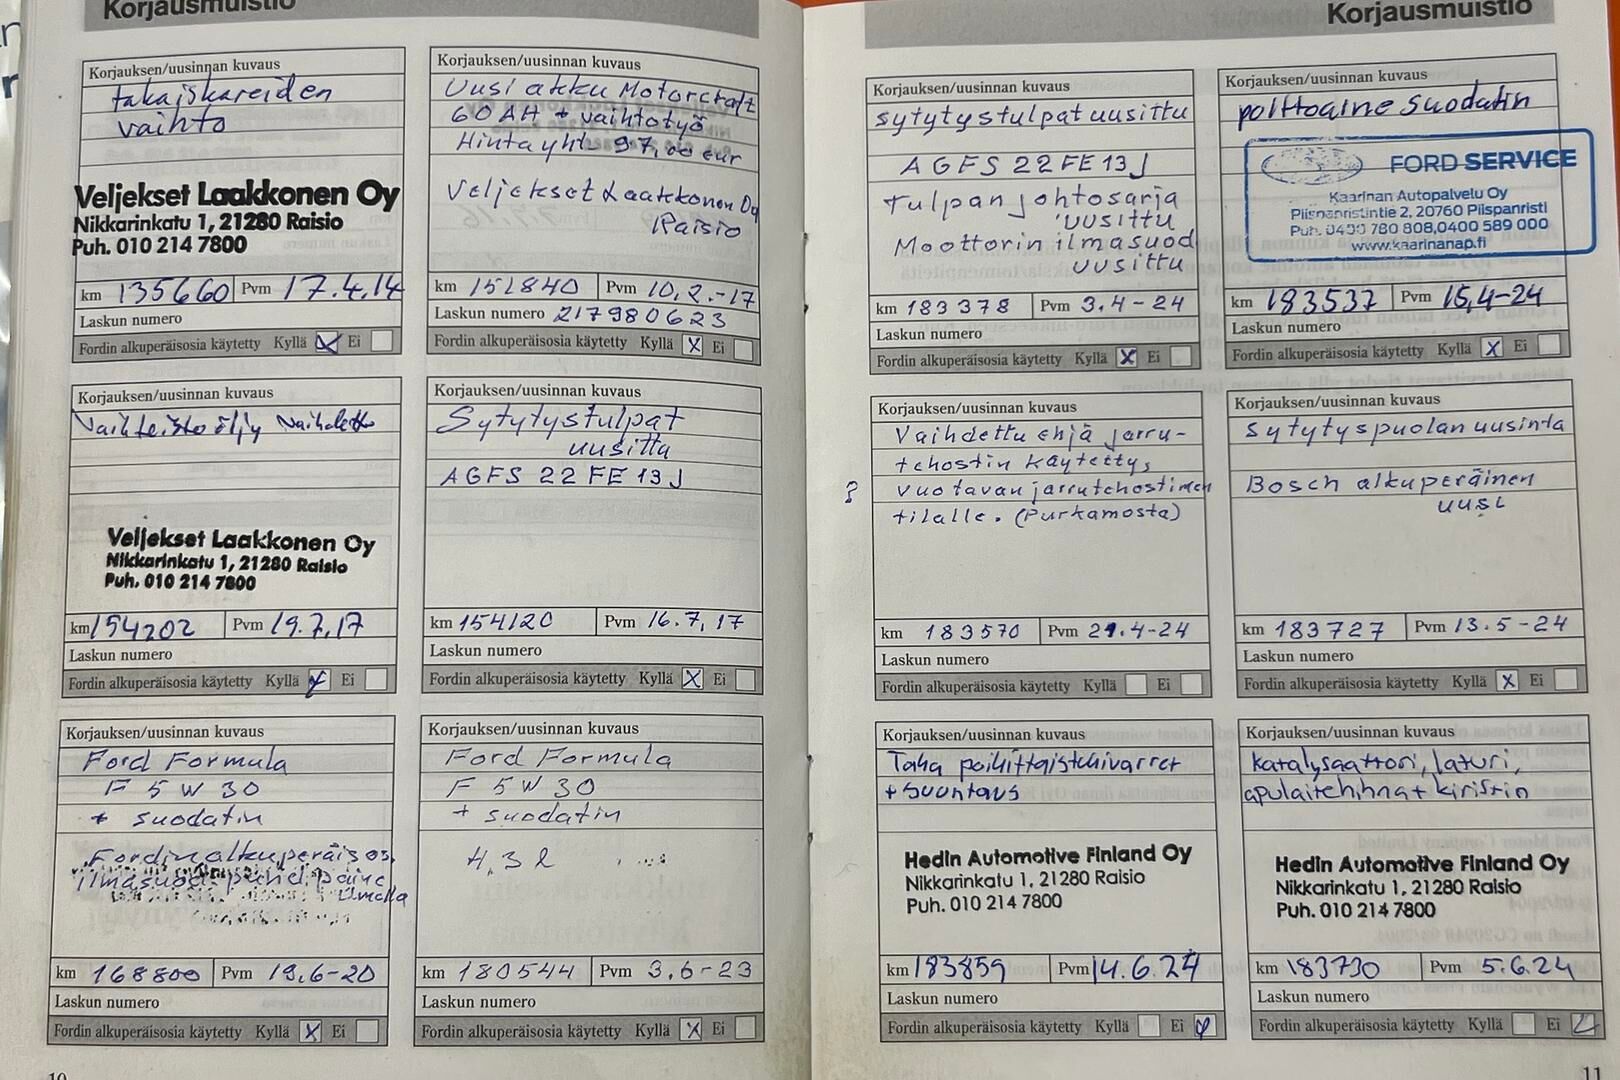 Korjausmuistio
Korjauksen/uusinnan kuvaus
takaiskareiden
vaihto
Veljekset Laakkonen Oy
Nikkarinkatu 1, 21280 Raisio
Puh. 010 214 7800
km 135660 Pvm 17.4.14
Laskun numero
Fordin alkuperäisosia käytetty Kyllä X Ei
Korjauksen/uusinnan kuvaus
Uusi akku Motorcraft
60 AH + vaihtotyö
Hinta yht. 97,00 eur
Veljekset Laakkonen Oy
Raisio
km 151840 Pvm 10.2.-17
Laskun numero 217980623
Fordin alkuperäisosia käytetty Kyllä X Ei
Korjauksen/uusinnan kuvaus
Vaihteistoöljy vaihdettu
Veljekset Laakkonen Oy
Nikkarinkatu 1, 21280 Raisio
Puh. 010 214 7800
km 154202 Pvm 19.7.17
Laskun numero
Fordin alkuperäisosia käytetty Kyllä X Ei
Korjauksen/uusinnan kuvaus
Sytytystulpat
uusittu
AGFS 22 FE 13 J
km 154120 Pvm 16.7.17
Laskun numero
Fordin alkuperäisosia käytetty Kyllä X Ei
Korjauksen/uusinnan kuvaus
Ford Formula
F 5W30
+ suodatin
Fordin alkuperäisos.
ilmasuod. puhd. paine
ilmalla
km 168800 Pvm 19.6-20
Laskun numero
Fordin alkuperäisosia käytetty Kyllä X Ei
Korjauksen/uusinnan kuvaus
Ford Formula
F 5W30
+ suodatin
4,3 l
km 180544 Pvm 3.6-23
Laskun numero
Fordin alkuperäisosia käytetty Kyllä X Ei
10
Korjausmuistio
Korjauksen/uusinnan kuvaus
sytytystulpat uusittu
AGFS 22 FE 13 J
Tulpan johtosarja
uusittu
Moottorin ilmasuod
uusittu
km 183378 Pvm 3.4-24
Laskun numero
Fordin alkuperäisosia käytetty Kyllä X Ei
Korjauksen/uusinnan kuvaus
polttoaine suodatin
FORD SERVICE
Kaarinan Autopalvelu Oy
Piispanristintie 2, 20760 Piispanristi
Puh. 0400 780 808,0400 589 000
www.kaarinanap.fi
km 183537 Pvm 15.4-24
Laskun numero
Fordin alkuperäisosia käytetty Kyllä X Ei
Korjauksen/uusinnan kuvaus
Vaihdettu ehjä jarru-
tehostin käytetty,
? vuotavan jarrutehostimen
tilalle. (Purkamosta)
km 183570 Pvm 29.4-24
Laskun numero
Fordin alkuperäisosia käytetty Kyllä Ei
Korjauksen/uusinnan kuvaus
Sytytyspuolan uusinta
Bosch alkuperäinen
uusi
km 183727 Pvm 13.5-24
Laskun numero
Fordin alkuperäisosia käytetty Kyllä X Ei
Korjauksen/uusinnan kuvaus
Taka poikittaistukivarret
+ suuntaus
Hedin Automotive Finland Oy
Nikkarinkatu 1, 21280 Raisio
Puh. 010 214 7800
km 183859 Pvm 14.6.24
Laskun numero
Fordin alkuperäisosia käytetty Kyllä Ei
Korjauksen/uusinnan kuvaus
katalysaattori, laturi,
apulaitehihna + kiristin
Hedin Automotive Finland Oy
Nikkarinkatu 1, 21280 Raisio
Puh. 010 214 7800
km 183730 Pvm 5.6.24
Laskun numero
Fordin alkuperäisosia käytetty Kyllä Ei
11